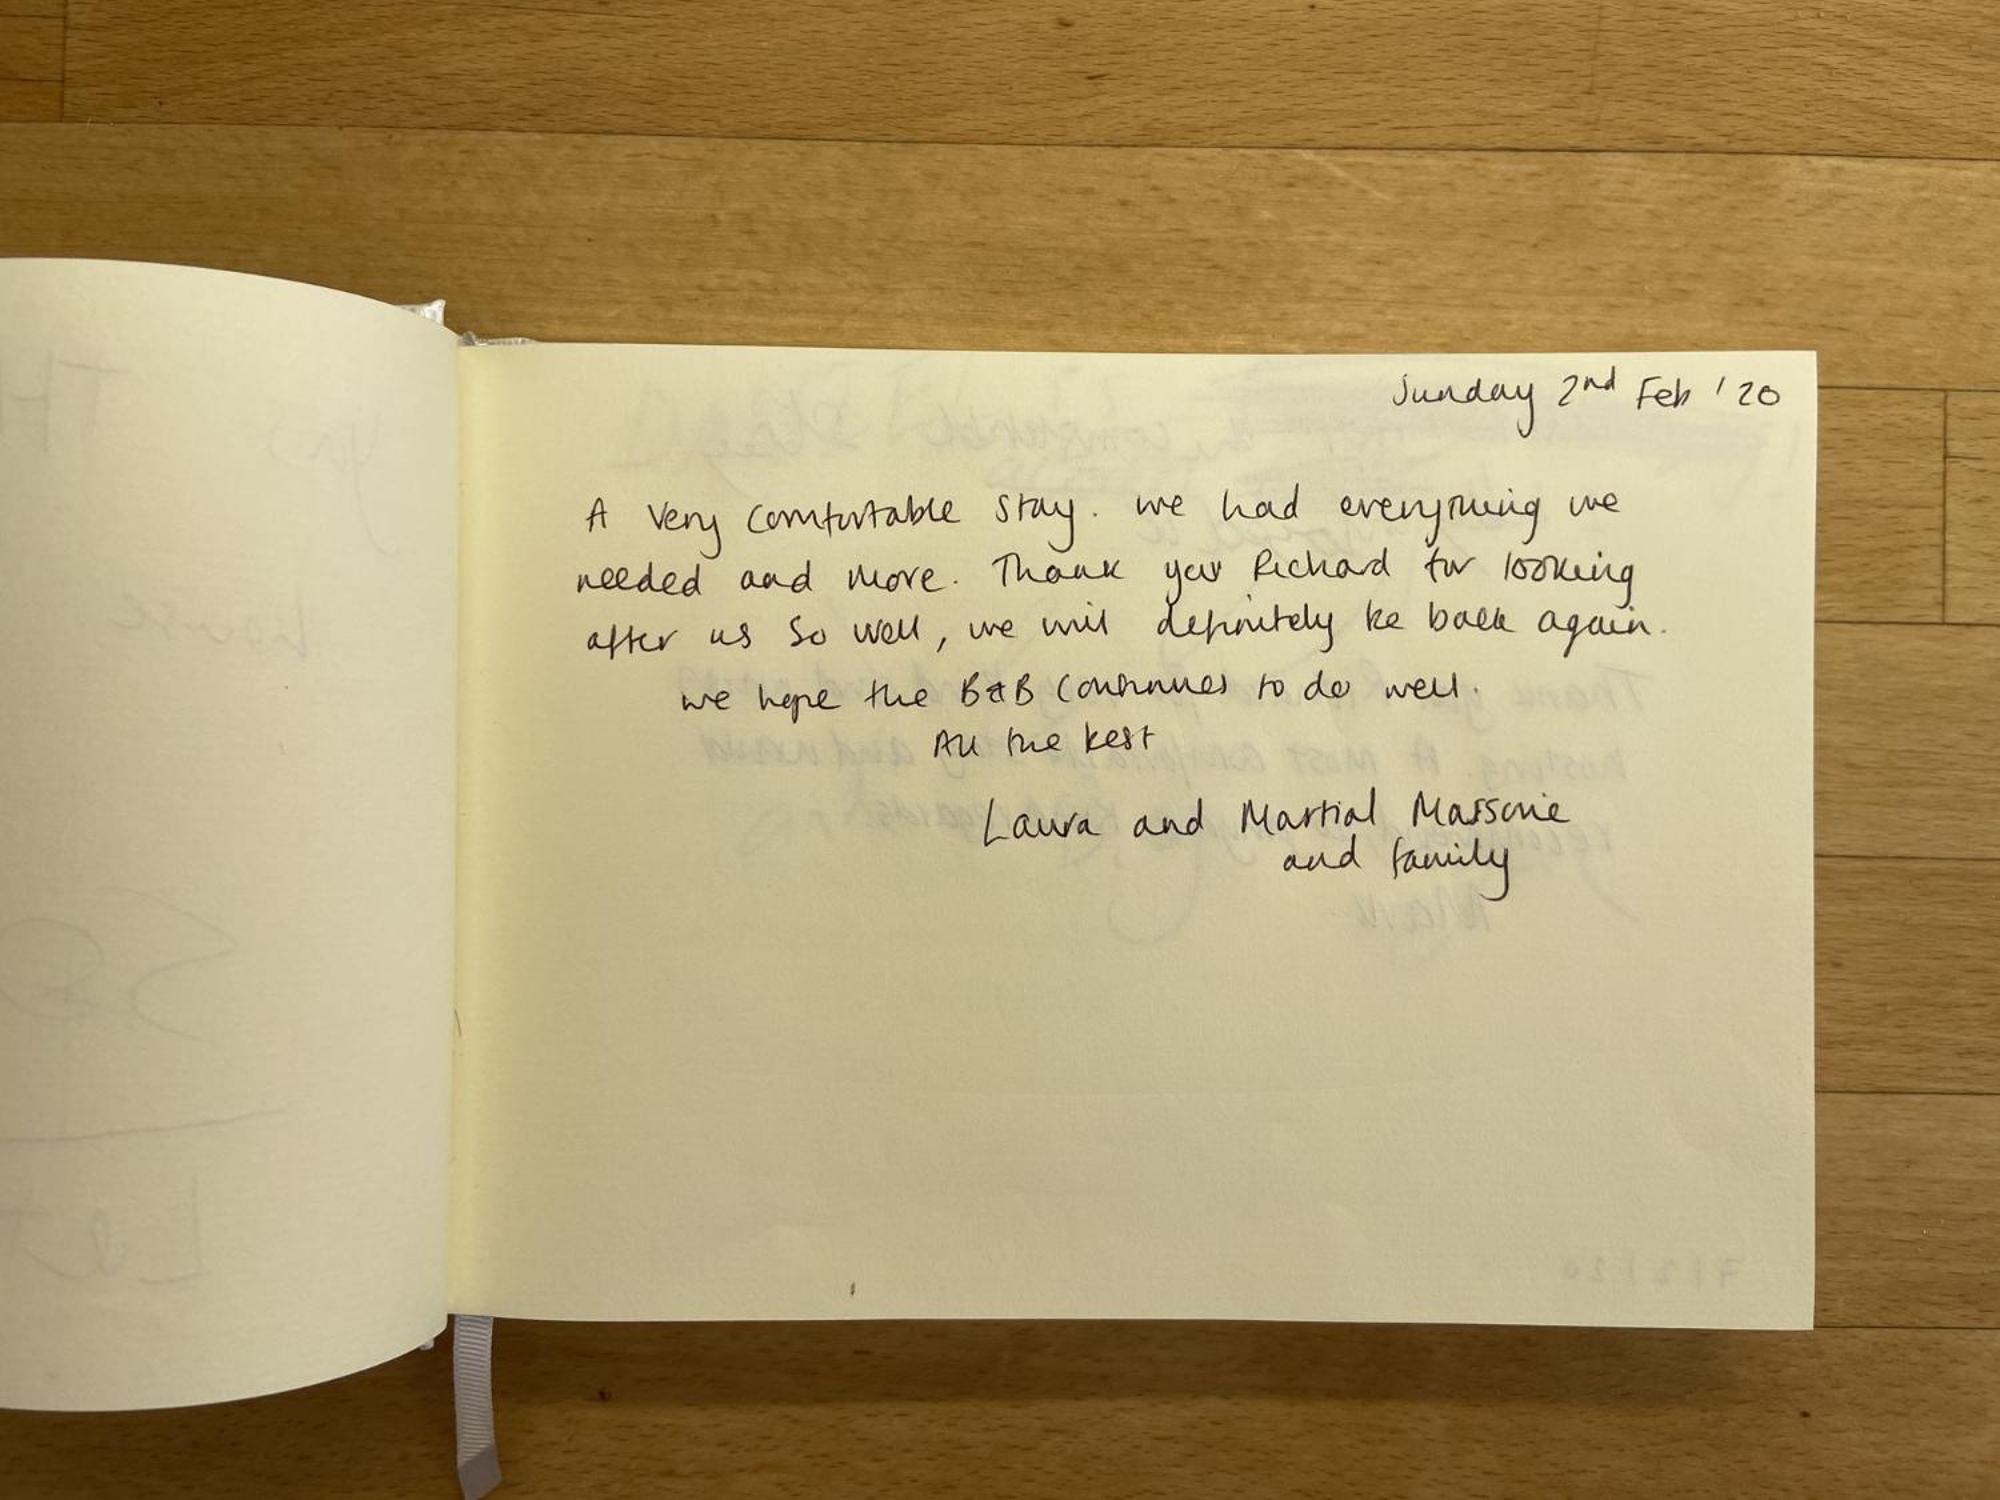 Sunday 2nd Feb '20
A very comfortable stay. we had everything we
needed and more. Thank you Richard for looking
after us so well, we will definitely be back again.
we hope the B&B continues to do well.
All the best
Laura and Martial Massonie
and family